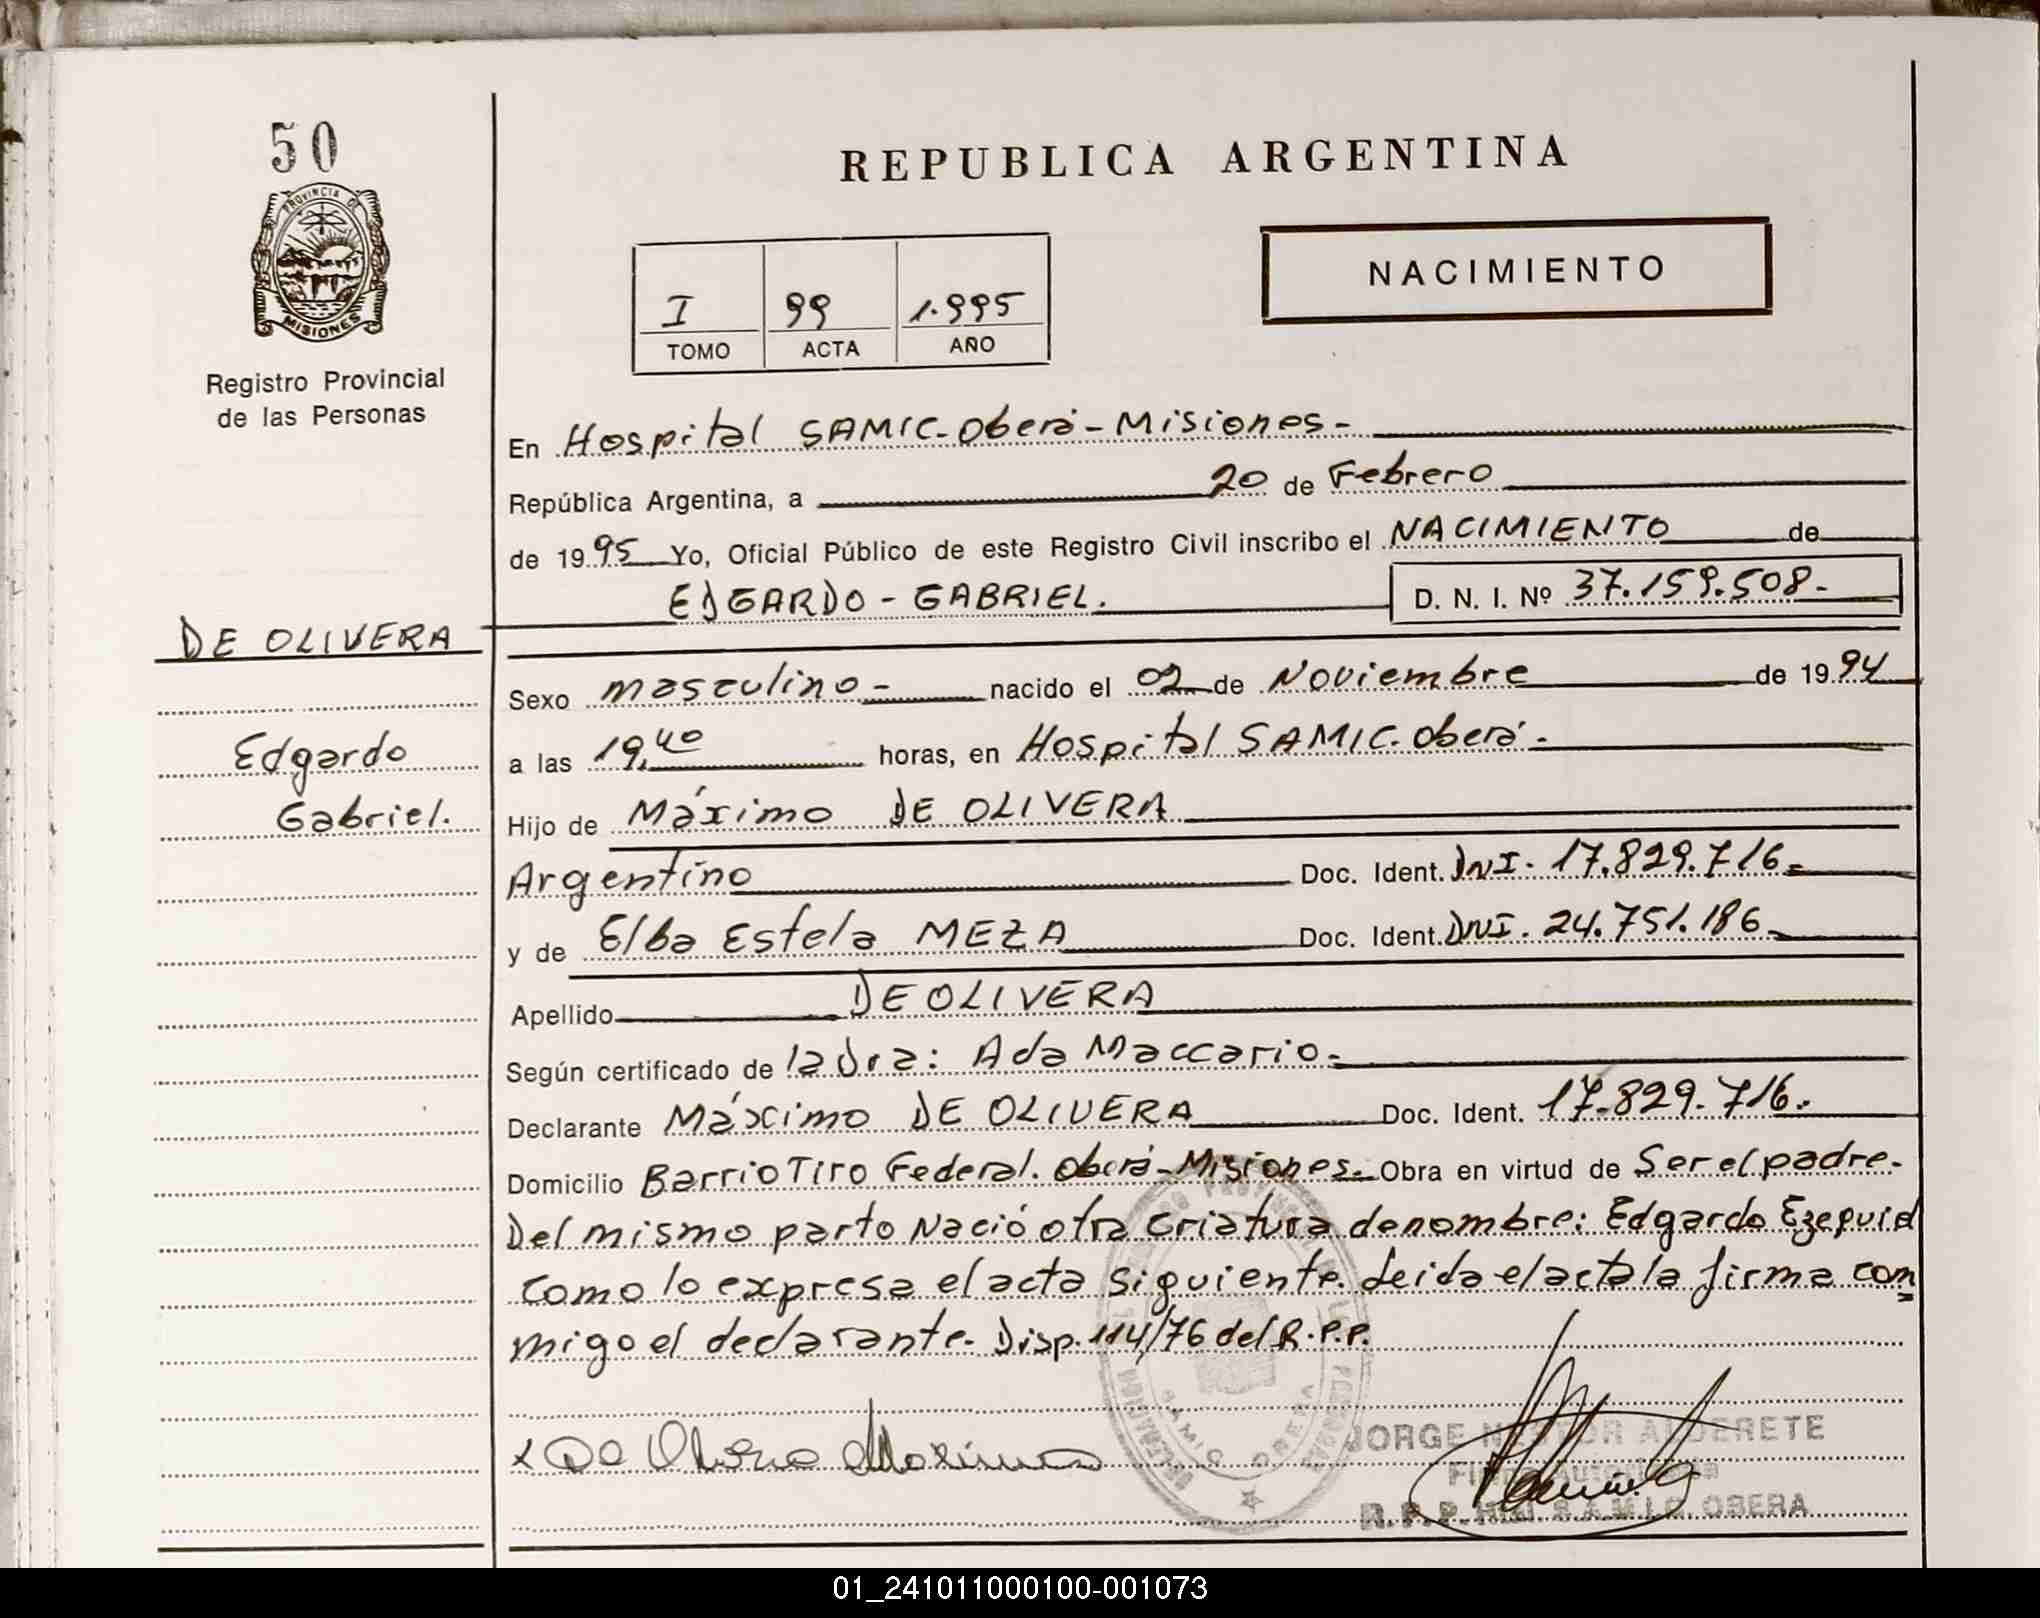 50
PROVINCIA DE
MISIONES
Registro Provincial
de las Personas
REPUBLICA ARGENTINA
NACIMIENTO
I 99 1.995
TOMO ACTA AÑO
En Hospital SAMIC-Oberá-Misiones-
República Argentina, a 20 de Febrero
de 1995 Yo, Oficial Público de este Registro Civil inscribo el NACIMIENTO de
EDGARDO-GABRIEL. D. N. I. Nº 37.159.508-
DE OLIVERA
Sexo masculino- nacido el 02 de Noviembre de 1994
Edgardo
a las 19,40 horas, en Hospital SAMIC. Oberá-
Gabriel.
Hijo de Máximo DE OLIVERA
Argentino Doc. Ident. DNI. 17.829.716-
y de Elba Estela MEZA Doc. Ident. DNI. 24.751.186-
Apellido DE OLIVERA
Según certificado de la Dra: Ada Maccario-
Declarante Máximo DE OLIVERA Doc. Ident. 17.829.716.
Domicilio Barrio Tiro Federal. Oberá-Misiones- Obra en virtud de Ser el padre-
Del mismo parto Nació otra criatura de nombre: Edgardo Ezequiel
como lo expresa el acta siguiente. Leida el acta la firma con
migo el declarante- Disp. 114/76 del R.P.P.
x De Olivera Maximo
JORGE NESTOR ALDERETE
Firma Autorizada
R. P. P. Htal. S.A.M.I.C. OBERA
01_241011000100-001073